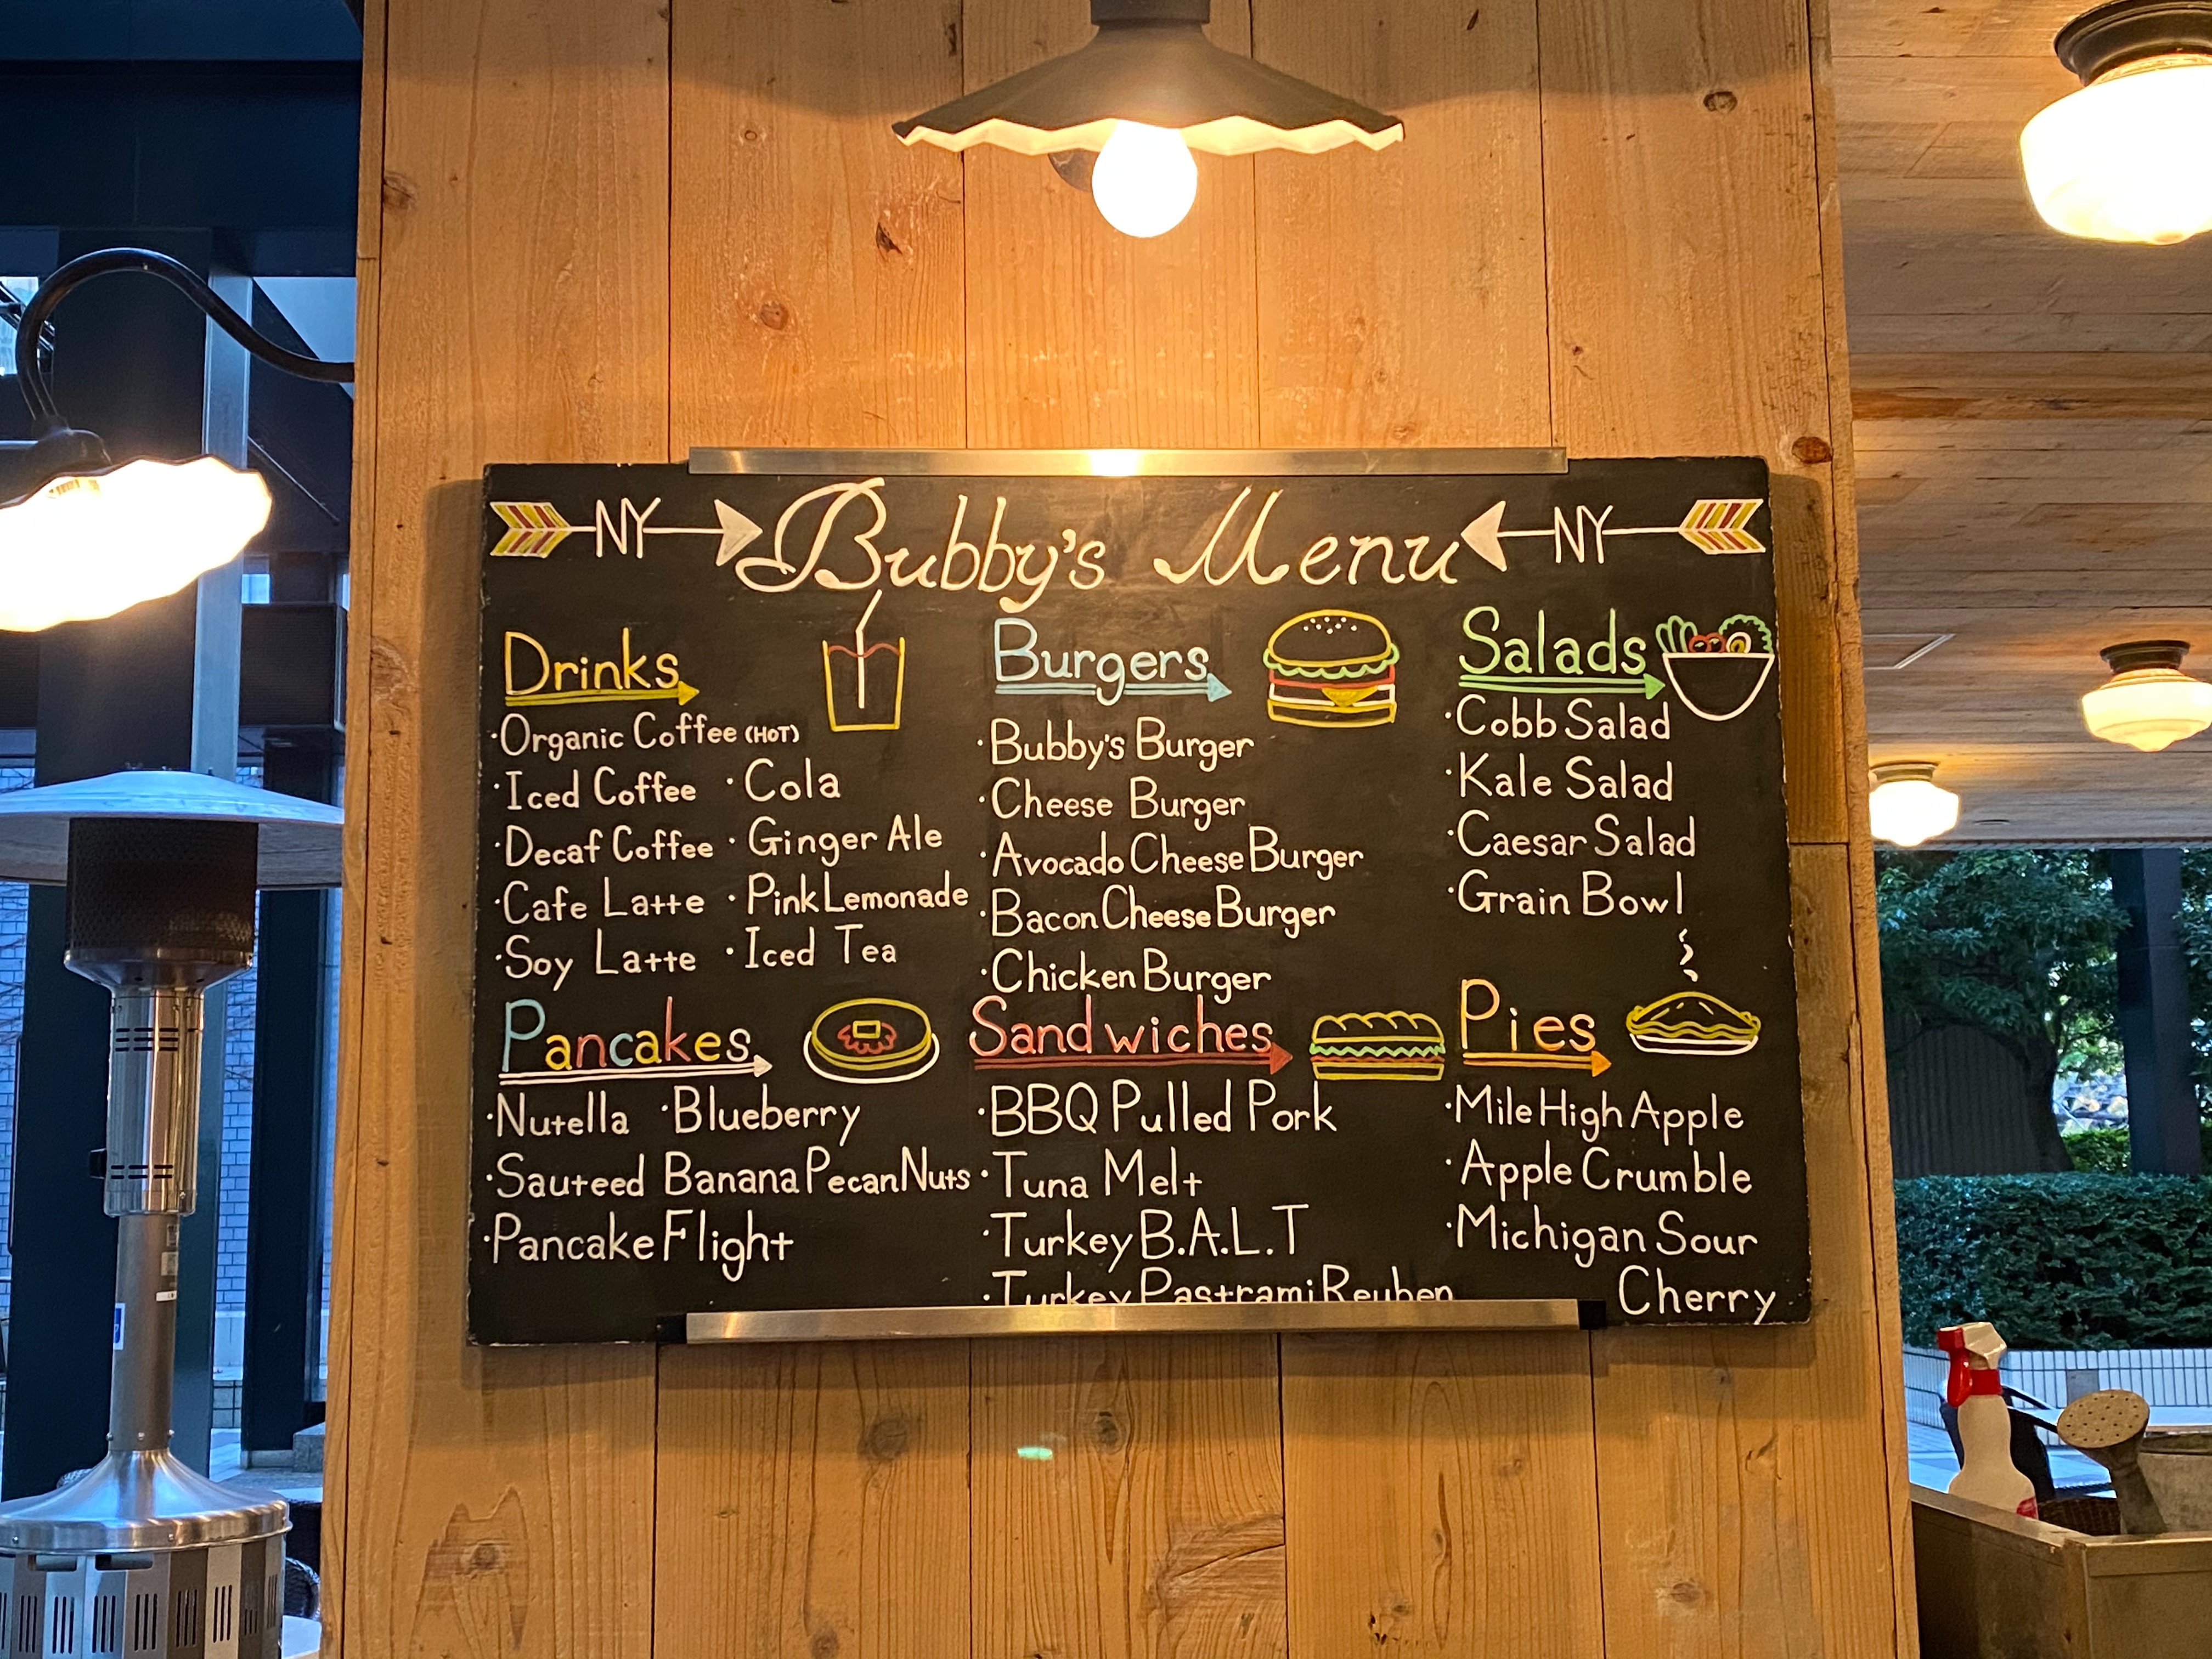 NY Bubby's Menu NY
Drinks
·Organic Coffee (HOT)
·Iced Coffee ·Cola
·Decaf Coffee ·Ginger Ale
·Cafe Latte ·Pink Lemonade
·Soy Latte ·Iced Tea
Pancakes
·Nutella ·Blueberry
·Sauteed Banana Pecan Nuts
·Pancake Flight
Burgers
·Bubby's Burger
·Cheese Burger
·Avocado Cheese Burger
·Bacon Cheese Burger
·Chicken Burger
Sandwiches
·BBQ Pulled Pork
·Tuna Melt
·Turkey B.A.L.T
·Turkey Pastrami Reuben
Salads
·Cobb Salad
·Kale Salad
·Caesar Salad
·Grain Bowl
Pies
·Mile High Apple
·Apple Crumble
·Michigan Sour
Cherry